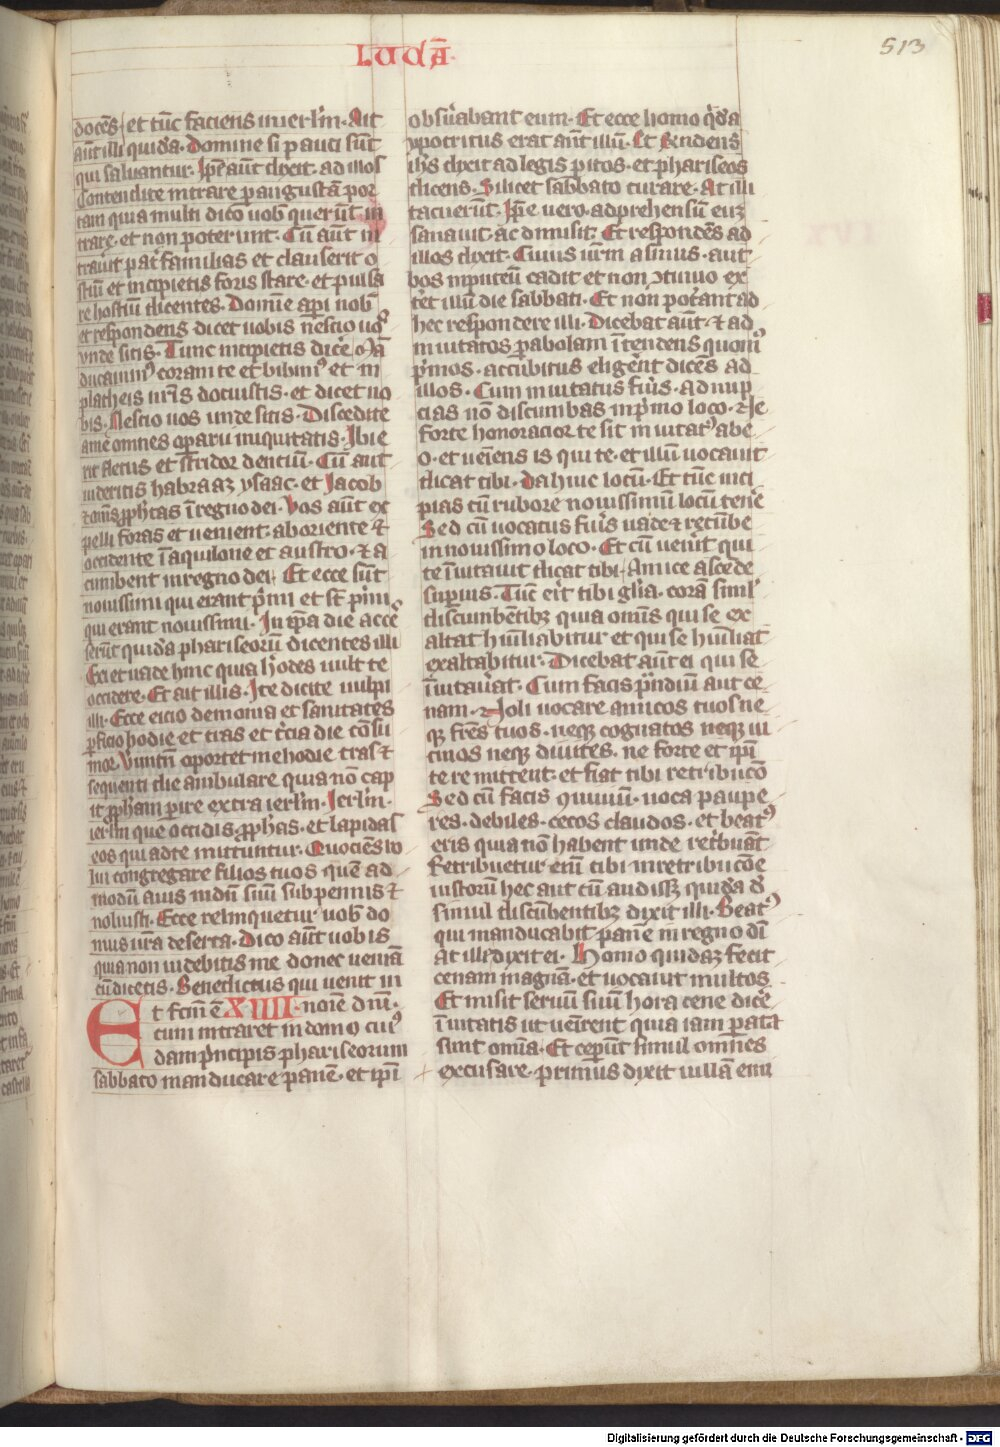 LUCĀ
513
docēs et tūc faciens in ierl'm. Ait
aūt illi quidā. Domine si pauci sūt
qui saluantur. Ip̄e aūt dixit. ad illos
Contendite intrare p angustā por
tam quia multi dico uob' querūt in
trare. et non poterunt. Cū aūt in
trau'it pat' familias et clauserit o
stiū et incipietis foris stare. et pulsa
re hostiū dicentes. Domine ap̄i nob'
et respondens dicet uobis nescio uos
vnde sitis. Tunc incipietis dic'e Mā
ducauim' coram te et bibim' et in
platheis nr̄is docuistis. et dicet uo
bis. Nescio uos unde sitis. Discedite
a me omnes oparii iniquitatis. Ibi e
rit fletus et stridor dentiū. Cū aut
uideritis habraaz ysaac. et Jacob
et om̄s pph'tas ī regno dei. Vos aūt ex
pelli foras et uenient ab oriente et
occidente ī aquilone et austro. et a
cumbent in regno dei. Et ecce sūt
nouissimi qui erant p'mi et st̄ p'mi
qui erant nouissimi. In ip̄a die acce
serūt quidā phariseorū dicentes illi
Exi et uade hinc quia h'odes uult te
occidere. Et ait illis. Ite dicite uulpi
illi. Ecce eicio demonia et sanitates
pficio hodie et cras et t'cia die cōsu
mor. Vūtn̄ oportet me hodie cras et
sequenti die ambulare quia nō cap
it pph'am pire extra ierl'm. Ierl'm.
ierl'm que occidis pph'as. et lapidas
eos qui ad te mittuntur. Quociēs uo
lui congregare filios tuos quē ad
modū auis nidū suū sub pennis et
noluisti. Ecce relinquetur uob' do
mus ur̄a deserta. Dico aūt uobis
quia non uidebitis me donec ueniā
cū dicetis. Benedictus qui uenit in
Et fcm̄ ē XIIII. noīe dni.
cum intraret in domo cui'
dam p'ncipis phariseorum
sabbato manducare panē. et ip̄i
obs'uabant eum. Et ecce homo q'dā
ypocritus erat aūt illū. Et Rendens
ih's dixit ad legis p'itos. et phariseos
dicens. Si licet sabbato curare. At illi
tacuerūt. Ip̄e uero. adprehensū euz
sanauit. ac dimisit. Et respondēs ad
illos dixit. Cuius ur̄m asinus. aut
bos in puteū cadit et non ↄtinuo ex
t'et illū die sabbati. Et non pot'ant ad
hec respondere illi. Dicebat aūt. et ad
inuitatos pabolam ītendens quom'
p'mos. accūbitus elig'ent dicēs ad
illos. Cum inuitatus fu'is. ad nup
cias nō discumbas in p'mo loco. Ne
forte honoracior te sit inuitat' ab e
o. et ueiens is qui te. et illū uocauit
dicat tibi. Da huic locū. Et tūc inci
pias cū rubore nouissimū locū ten'e
Sed cū uocatus fu'is uade et recūbe
in nouissimo loco. Et cū uen'it qui
te īuitauit dicat tibi. Amice ascēde
sup'ius. Tūc er't tibi gl'ia. corā simł
discumbētibz quia omīs qui se ex
altat hūiliabitur et qui se hūiliat
exaltabitur. Dicebat aūt ei qui se
īuitau'at. Cum facis p'ndiū aut ce
nam. Noli uocare amicos tuos ne
q3 fr̄es tuos. neq3 cognatos neq3 ui
cinos neq3 diuites. ne forte et ip̄i
te remittent. et fiat tibi retribucō
Sed cū facis ↄuiuiū. uoca paupe
res. debiles. cecos claudos. et beat'
eris quia nō habent unde ret'buāt
Retribuetur enī tibi in retribucōe
iustorū hec aut cū audiss3 quidā d'
simul discūbentib3 dixit illi. Beat'
qui manducabit panē in regno dī
At ille dixit ei. Homo quidaz fecit
cenam magnā. et uocauit multos
Et misit seruū suū hora cene dice'
īuitatis ut uēirent quia iam parata
sunt omīa. Et cep'unt simul omnēs
excusare. primus dixit uillā emi
Digitalisierung gefördert durch die Deutsche Forschungsgemeinschaft - DFG